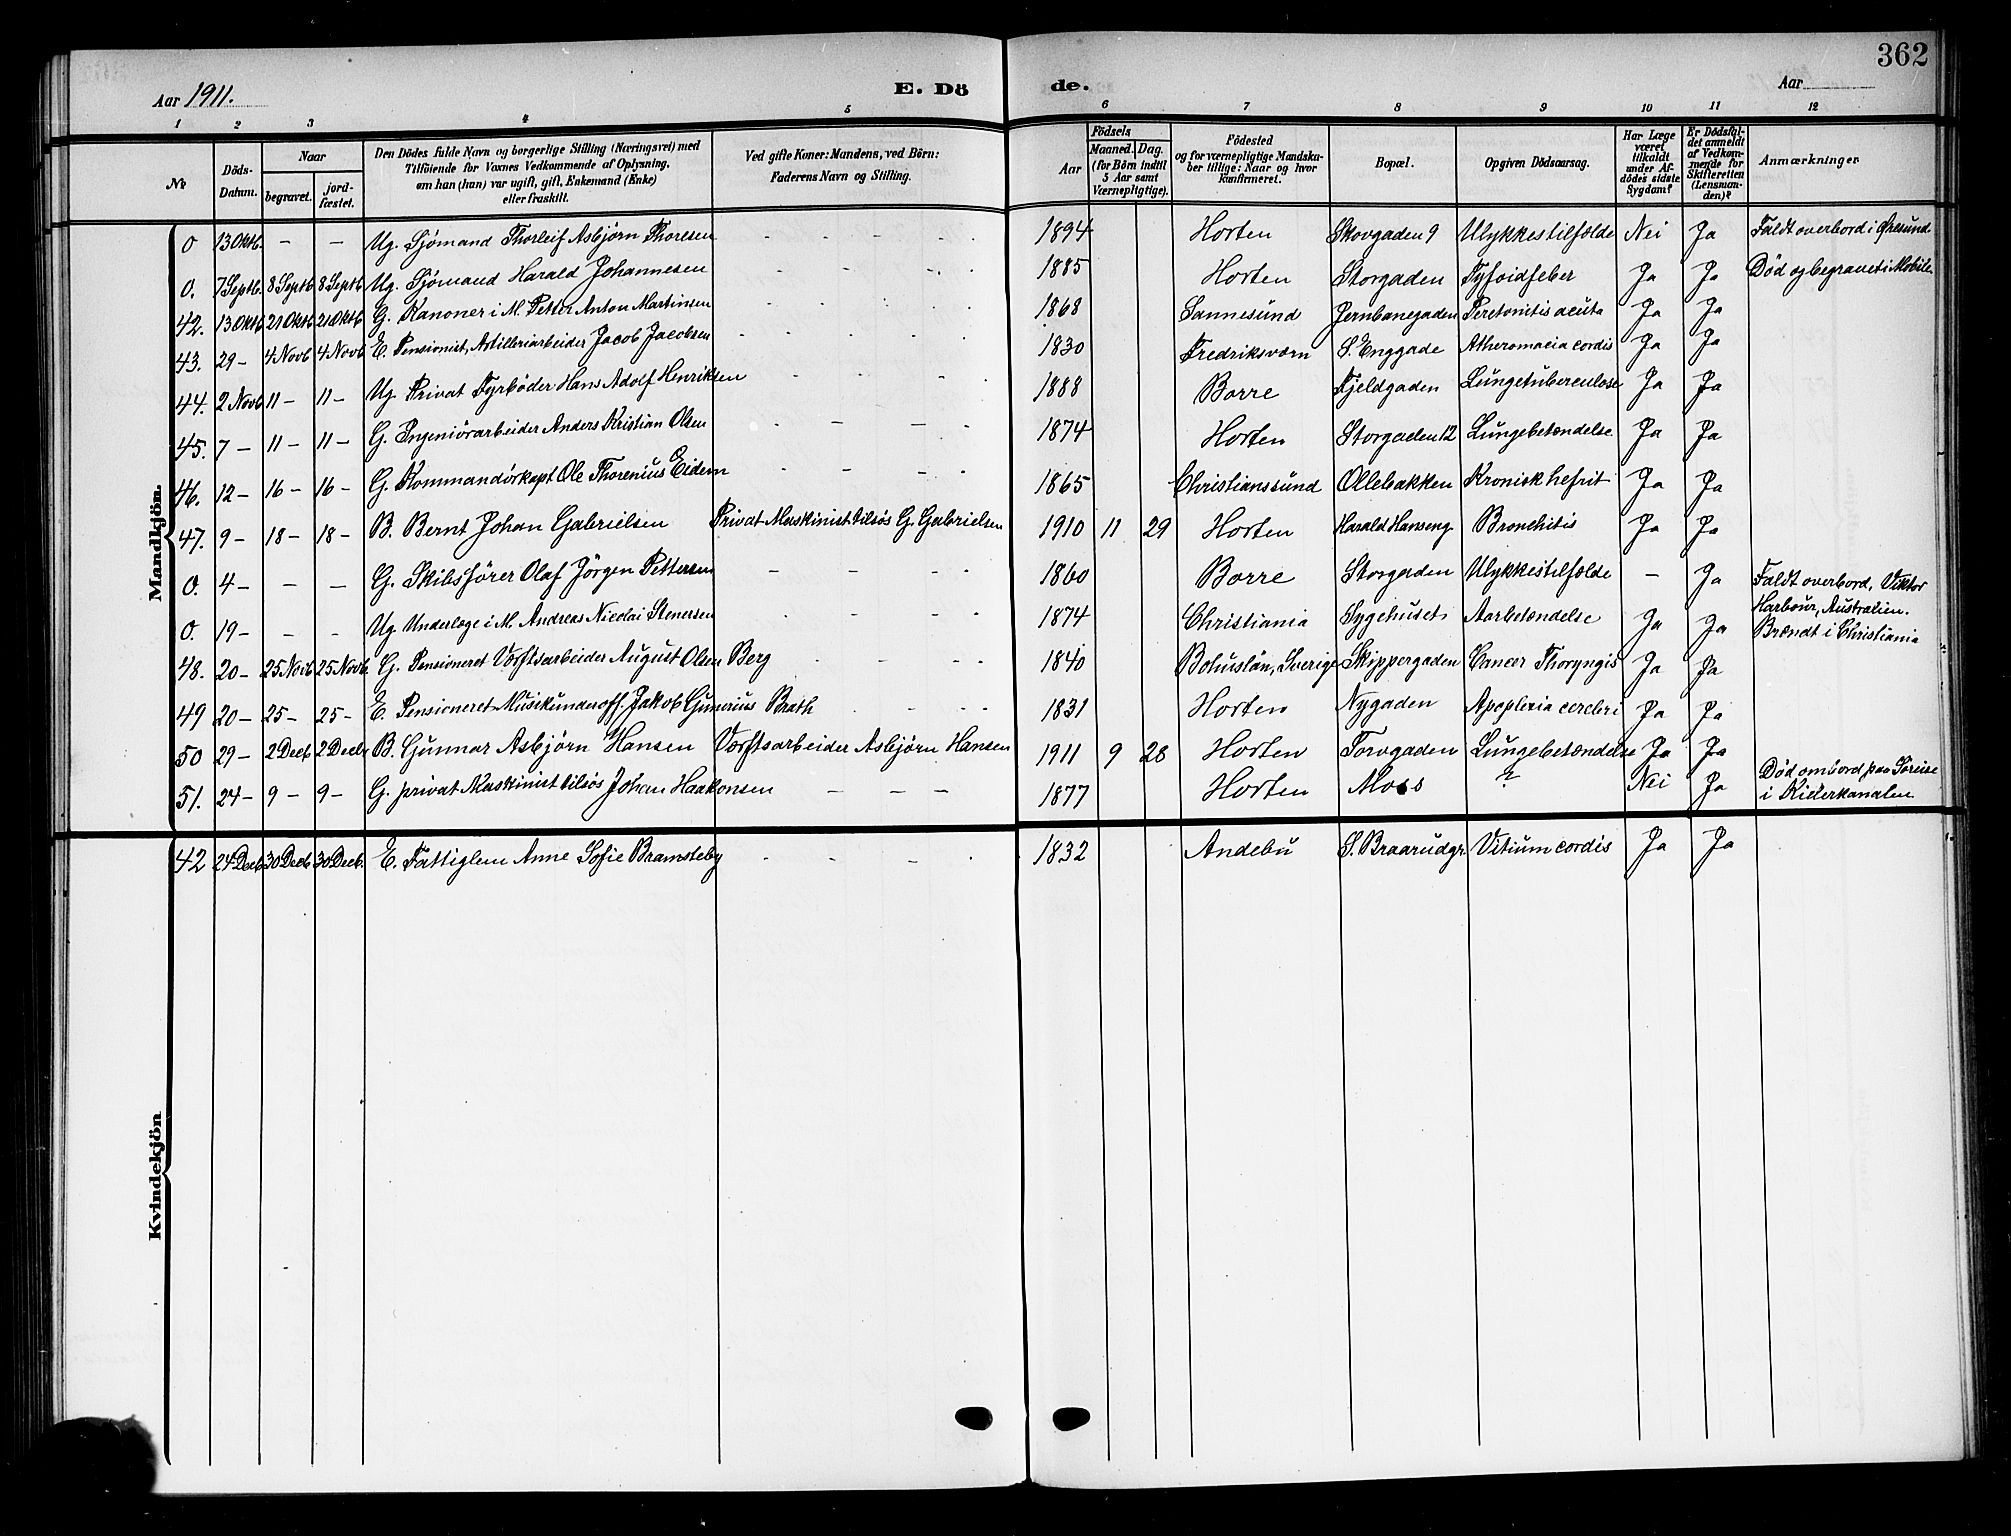 362
Aar 1911.
E. Dö
de.
Aar
1 2 3 4 5 6 7 8 9 10 11 12
№
Döds-Datum.
Naar
begravet.
jord-fæstet.
Den Dödes fulde Navn og borgerlige Stilling (Næringsvei) med
Tilföiende for Voxnes Vedkommende af Oplysning,
om han (hun) var ugift, gift, Enkemand (Enke)
eller fraskilt.
Ved gifte Koner: Mandens, ved Börn:
Faderens Navn og Stilling.
Födsels
Aar
Maaned. Dag.
(for Börn indtil
5 Aar samt
Værnepligtige).
Födested
og for værnepligtige Mandska-
ber tillige: Naar og hvor
konfirmeret.
Bopæl.
Opgiven Dödsaarsag.
Har Læge
været
tilkaldt
under Af-
dödes sidste
Sygdom?
Er Dödsfal-
det anmeldt
af Vedkom-
mende for
Skifteretten
(Lensman-
den)?
Anmærkninger
Mandkjön.
0 13 Oktb. – – Ug. Sjömand Thorleif Asbjørn Thoresen 1894 Horten Skovgaden 9 Ulykkestilfælde Nei Ja Faldt overbord i Øresund
0. 7 Septb. 8 Septb 8 Septb Ug. Sjömand Harald Johannesen 1885 Horten Storgaden Tyfoidfeber Ja Ja Død og begravet i Mobile
42. 13 Oktb 21 Oktb 21 Oktb G. Kanoner i M. Petter Anton Martinsen 1868 Sannesund Jernbanegaden Peretonitis acuta Ja Ja
43. 29 – 4 Novb 4 Novb E. Pensionist, Artilleriarbeider Jacob Jacobsen 1830 Fredriksværn S. Enggade Atheromacia cordis Ja Ja
44. 2 Novb 11 – 11 – Ug. Privat Fyrbøder Hans Adolf Henriksen 1888 Borre Fjeldgaden Lungetuberculose Ja Ja
45. 7 – 11 – 11 – G. Ingeniörarbeider Anders Kristian Olsen 1874 Horten Storgaden 12 Lungebetændelse Ja Ja
46. 12 – 16 – 16 – G. Kommandörkapt Ole Thorenius Eidem 1865 Christianssund Ollebakken Kronisk nefrit Ja Ja
47. 9 – 18 – 18 – B. Bernt Johan Gabrielsen Privat Maskinist tilsös G. Gabrielsen 1910 11 29 Horten Harald Hanseng. Bronchitis Ja Ja
0. 4 – – – G. Skibsförer Olaf Jörgen Pettersen 1860 Borre Storgaden Ulykkestilfælde – Ja Faldt overbord, Viktor
Harbour, Australien.
0. 19 – – – Ug. Underlæge i M. Andreas Nicolai Stenersen 1874 Christiania Sygehuset Aarbetændelse Ja Ja Brændt i Christiania
48. 20 – 25 Novb 25 Novb. G. Pensioneret Værftsarbeider August Olsen Berg 1840 Bohuslän, Sverige Skippergaden Cancer Thoryngis Ja Ja
49 20 – 25 – 25 – E. Pensioneret Musikunderoff. Jakob Gunerius Brath 1831 Horten Nygaden Apoplexia cerebri Ja Ja
50 29 – 2 Decb 2 Decb B. Gunnar Asbjørn Hansen Værftsarbeider Asbjørn Hansen 1911 9 28 Horten Torvgaden Lungebetændelse Ja Ja
51. 24 – 9 – 9 – G. privat Maskinist tilsös Johan Haakonsen 1877 Horten Moss ? Nei Ja Død ombord paa Søreise
i Kielerkanalen
Kvindekjön
42 24 Decb. 30 Decb 30 Decb. E. Fattiglem Anne Sofie Bramsteby 1832 Andebu S. Braarudgr. Vitium cordis Ja Ja